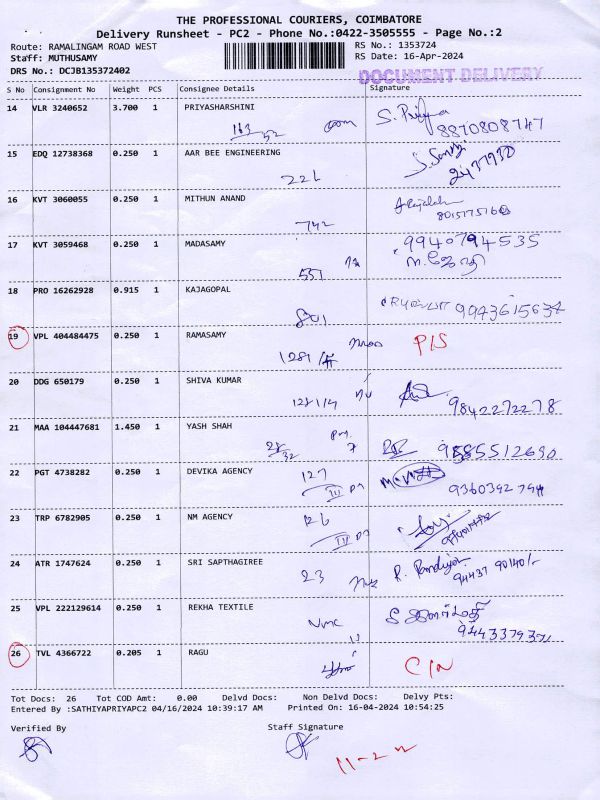 THE PROFESSIONAL COURIERS, COIMBATORE
Delivery Runsheet - PC2 - Phone No.:0422-3505555 - Page No.:2
Route: RAMALINGAM ROAD WEST RS No.: 1353724
Staff: MUTHUSAMY RS Date: 16-Apr-2024
DRS No.: DCJB135372402
DOCUMENT DELIVERY
S No Consignment No Weight PCS Consignee Details Signature
14 VLR 3240652 3.700 1 PRIYASHARSHINI S. Priya
8870808747
15 EDQ 12738368 0.250 1 AAR BEE ENGINEERING
221
16 KVT 3060055 0.250 1 MITHUN ANAND
742
17 KVT 3059468 0.250 1 MADASAMY 9940794535
551
18 PRO 16262928 0.915 1 KAJAGOPAL
801
19 VPL 404484475 0.250 1 RAMASAMY P/S
1281/
20 DDG 650179 0.250 1 SHIVA KUMAR
1281/4 9842272278
21 MAA 104447681 1.450 1 YASH SHAH
28/32
22 PGT 4738282 0.250 1 DEVIKA AGENCY 127
III
23 TRP 6782905 0.250 1 NM AGENCY 126
III
24 ATR 1747624 0.250 1 SRI SAPTHAGIREE
23 R. Pandiyan 94437 90140/-
25 VPL 222129614 0.250 1 REKHA TEXTILE
NMC
26 TVL 4366722 0.205 1 RAGU C/N
Tot Docs: 26 Tot COD Amt: 0.00 Delvd Docs: Non Delvd Docs: Delvy Pts:
Entered By :SATHIYAPRIYAPC2 04/16/2024 10:39:17 AM Printed On: 16-04-2024 10:54:25
Verified By Staff Signature